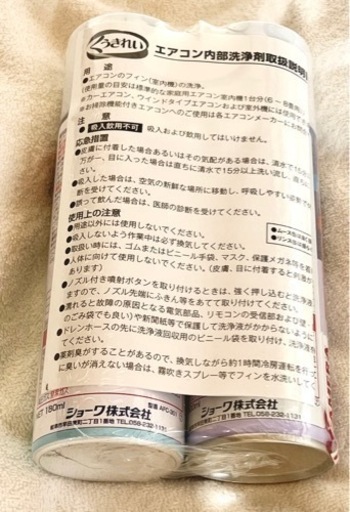 くうきれい
エアコン内部洗浄剤取扱説明
用 途
●エアコンのフィン(室内機)の洗浄。
(使用量の目安は標準的な家庭用エアコン室内機1台分(6~
※カーエアコン、ウインドタイプエアコンおよび室外機には
※お掃除機能付きエアコンへのご使用は各エアコンメーカーにお問
注 意
吸入飲用不可 吸入および飲用してはいけません。
応急措置
●皮膚に付着した場合あるいはその気配がある場合は、清水で15分
万が一、目に入った場合は直ちに清水で15分以上洗い流し、直ち
●吸入した場合は、空気の新鮮な場所に移動し、呼吸しやすい姿勢で
断を受けてください。
●誤って飲んだ場合は、医師の診断を受けてください。
使用上の注意
●用途以外には使用しないでください。
●吸入しないよう作業中は必ず換気してください。
●取扱い時には、ゴムまたはビニール手袋、マスク、保護メガネ等を着
●人体に向けて使用しないでください。(皮膚、目に付着すると刺激が
あります)
●ノズル付き噴射ボタンを取り付けるときは、強く押し込むと洗浄液
ますので、ノズル先端にふきん等をあてて取り付けてください。
●濡れると故障の原因となる電気部品、リモコンの受信部および壁、
のごみ袋でも良い)や新聞紙等で保護して洗浄液がかからないように
●ドレンホースの先に洗浄液回収用のビニール袋を取りつけ、洗浄液
てください。
●薬剤臭がすることがあるので、換気しながら約1時間冷房運転を行
に臭いが消えない場合は、霧吹きスプレー等でフィンを水洗いしてく
180ml
ショーワ株式会社
TEL 058-232-1131
ショーワ株式会社
TEL 058-232-1131